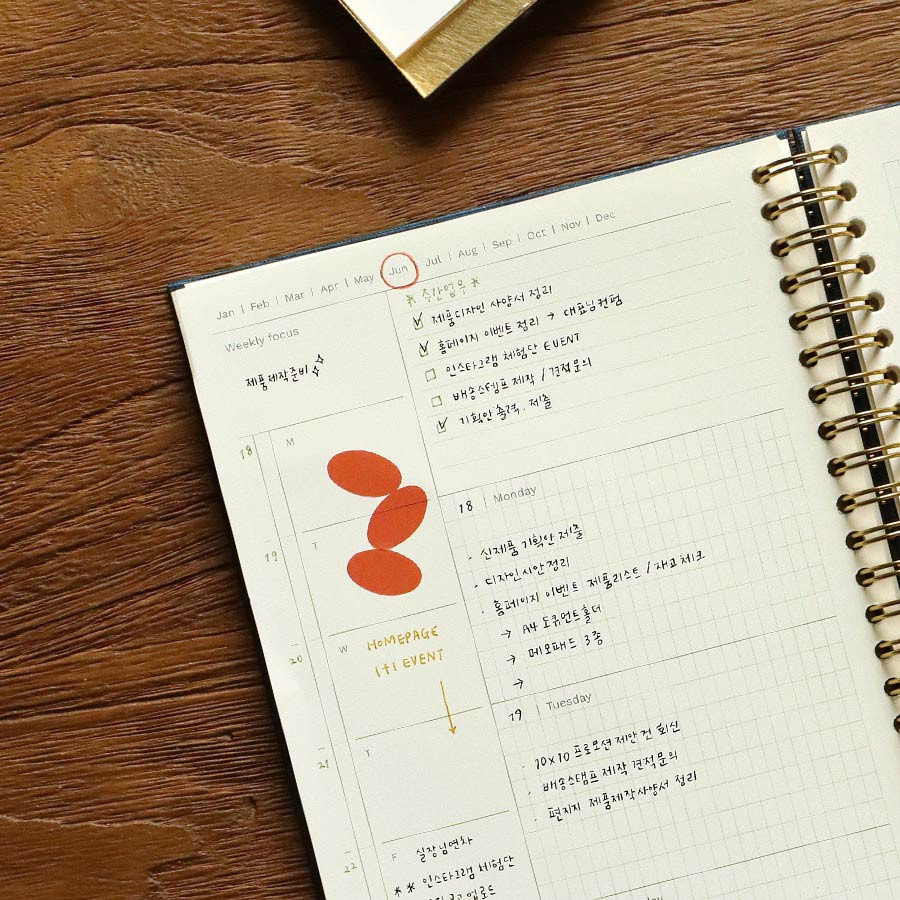 Jan | Feb | Mar | Apr | May | Jun | Jul | Aug | Sep | Oct | Nov | Dec
Weekly focus
제품제작준비
* 주간업무 *
제품디자인 사양서 정리
홈페이지 이벤트 정리 → 대표님컨펌
인스타그램 체험단 EVENT
배송스탬프 제작 / 견적문의
기획안출력. 제출
18
M
19
T
20
W
HOMEPAGE
1+1 EVENT
21
T
22
F
실장님연차
** 인스타그램 체험단
업로드
18 | Monday
· 신제품 기획안 제출
· 디자인시안정리
· 홈페이지 이벤트 제품리스트 / 재고체크
→ A4 도큐먼트홀더
→ 메모패드 3종
→
19 | Tuesday
· 10x10 프로모션 제안 건 회신
· 배송스탬프 제작 견적문의
· 편지지 제품제작사양서 정리